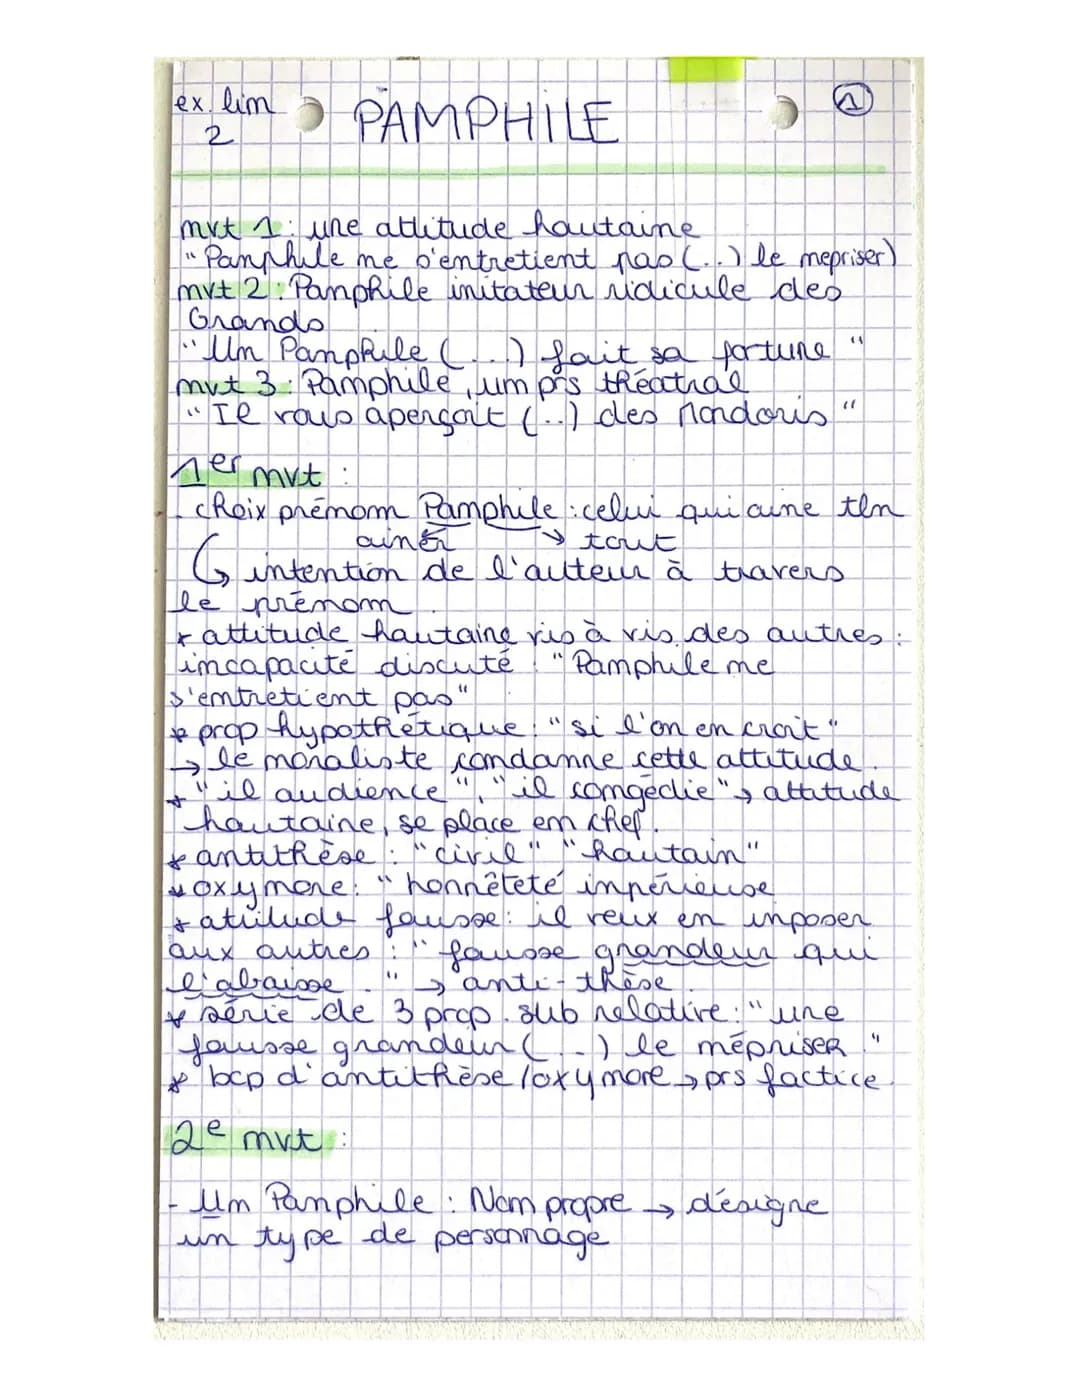 ex. lim
2
PAMPHILE
1
mvt 1 : une attitude hautaine
"Pamphile ne s'entretient pas (...) le mepriser)
mvt 2 : Pamphile imitateur ridicule des
Grands
"Un Pamphile (...) fait sa fortune"
mvt 3 : Pamphile, un prs théatral
"Il vous aperçoit (...) des Mondoris"
1er mvt :
. choix prénom Pamphile : celui qui aime tln
aimer → tout
↳ intention de l'auteur à travers
le prénom.
* attitude hautaine vis à vis des autres :
incapacité discuté : "Pamphile ne
s'entretient pas"
* prop hypothétique : "si l'on en croit"
→ le moraliste condamne cette attitude.
* "il audience", "il congédie" → attitude
hautaine, se place en chef.
* antithèse : "civil" "hautain"
* oxymore : "honnêteté impérieuse
* attitude fausse : il veux en imposer
aux autres : "fausse grandeur qui
l'abaisse." → anti-thèse.
* série de 3 prop. sub relative : "une
fausse grandeur (...) le mépriser."
* bcp d'antithèse/oxymore → prs factice.
2e mvt :
- Un Pamphile : Nom propre → désigne
un type de personnage